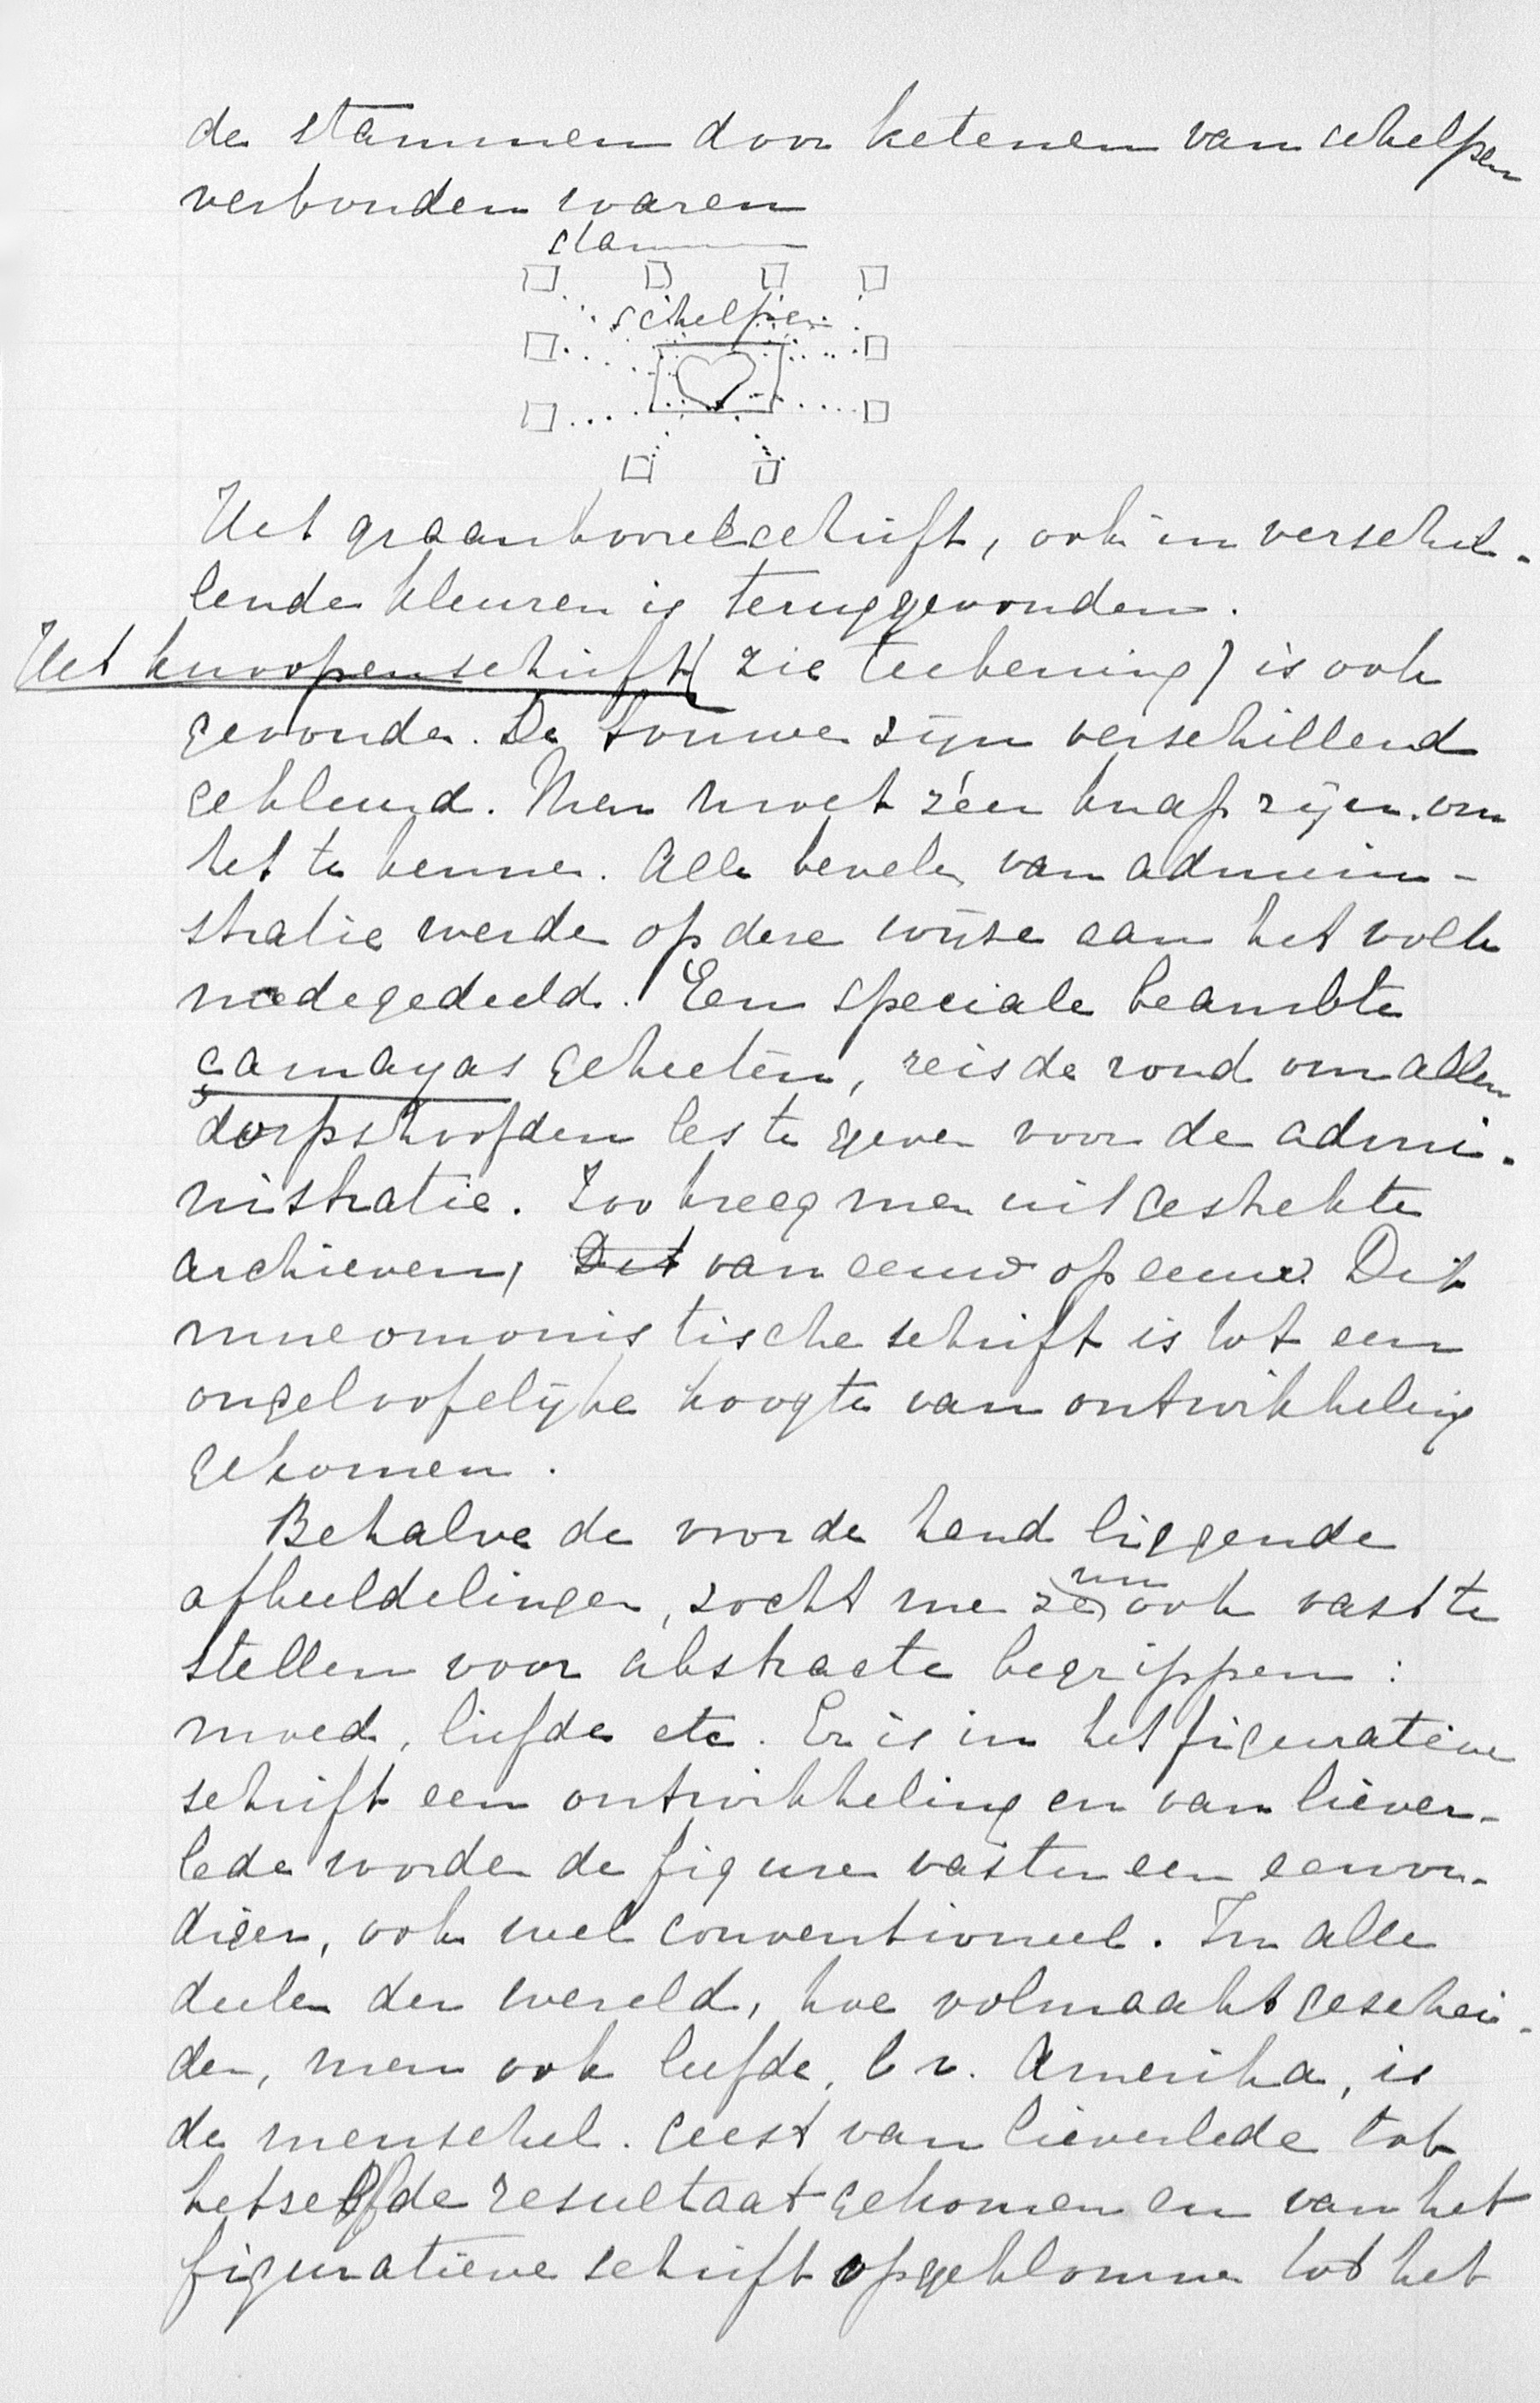 de stammen door ketenen van schelpen
verbonden waren
stam
schelpen
Het graankorrelschrift, ook in verschil-
lende kleuren is teruggevonden.
Het knoopenschrift (zie teekening) is ook
gevonden. De touwen zijn verschillend
gekleurd. Men moet zéer knap zijn om
het te kennen. Alle bevelen van admini-
stratie werden op deze wijze aan het volk
medegedeeld. Een speciale beambte
camayas geheeten, reisde rond om allen
dorpshoofden les te geven voor de admi-
nistratie. Zoo kreeg men uitgestrekte
archieven, Dit van eeuw op eeuw. Dit
mneomonistische schrift is tot een
ongeloofelijke hoogte van ontwikkeling
gekomen.
Behalve de voor de hand liggende
afbeeldelingen, zocht men ze nu ook vast te
stellen voor abstracte begrippen:
moed, liefde etc. Er is in het figuratieve
schrift een ontwikkeling en van liever-
lede worden de figuren vaster en eenvou-
diger, ook wel conventioneel. In alle
deelen der wereld, hoe volmaakt geschei-
den, men ook leefde, b v. Amerika, is
de menschel. geest van lieverlede tot
hetzelfde resultaat gekomen en van het
figuratieve schrift opgeklommen tot het